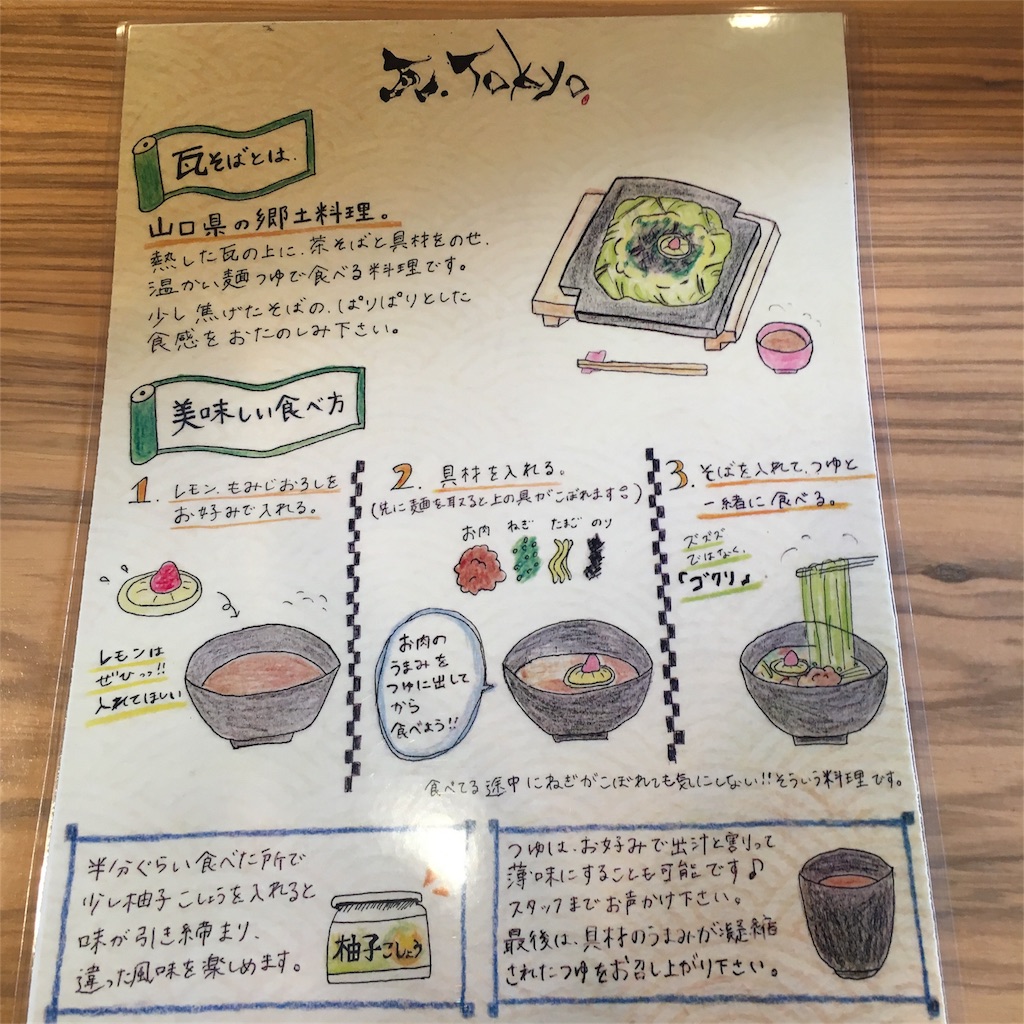 瓦.Tokyo
瓦そばとは、
山口県の郷土料理。
熱した瓦の上に、茶そばと具材をのせ、
温かい麺つゆで食べる料理です。
少し焦げたそばの、ぱりぱりとした
食感をおたのしみ下さい。
美味しい食べ方
1. レモン、もみじおろしを
お好みで入れる。
レモンは
ぜひっっ!!
入れてほしい
2. 具材を入れる。
(先に麺を取ると上の具がこぼれます。)
お肉 ねぎ たまご のり
お肉の
うまみを
つゆに出して
から
食べよう!!
3. そばを入れて、つゆと
一緒に食べる。
ズズズ
ではなく、
「ゴクリ」
食べてる途中にねぎがこぼれても気にしない!!そういう料理です。
半分ぐらい食べた所で
少し柚子こしょうを入れると
味が引き締まり、
違った風味を楽しめます。
柚子こしょう
つゆは、お好みで出汁と割って
薄味にすることも可能です♪
スタッフまでお声かけ下さい。
最後は、具材のうまみが凝縮
されたつゆをお召し上がり下さい。